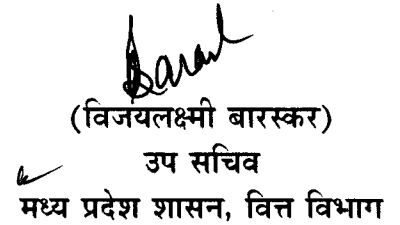 (विजयलक्ष्मी बारस्कर)
उप सचिव
मध्य प्रदेश शासन, वित्त विभाग